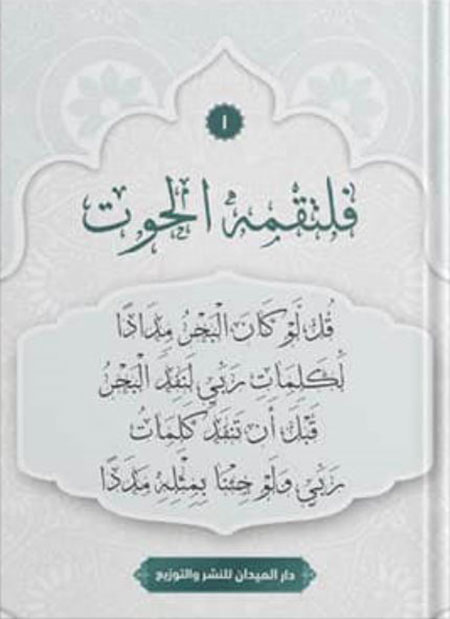 ١
فلتقمه الحوت
قُل لَّوْ كَانَ الْبَحْرُ مِدَادًا
لِّكَلِمَاتِ رَبِّي لَنَفِدَ الْبَحْرُ
قَبْلَ أَن تَنفَدَ كَلِمَاتُ
رَبِّي وَلَوْ جِئْنَا بِمِثْلِهِ مَدَدًا
دار الميدان للنشر والتوزيع